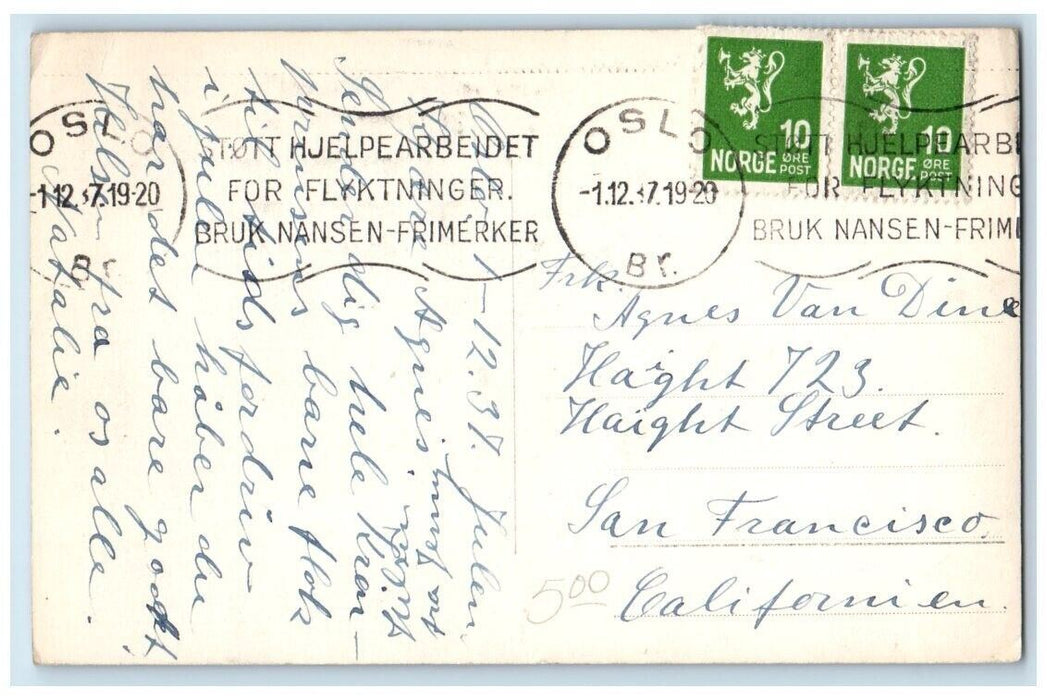 OSLO
-1.12.37.19-20
Br.
STØTT HJELPEARBEIDET
FOR FLYKTNINGER.
BRUK NANSEN-FRIMERKER
OSLO
-1.12.37.19-20
Br.
STØTT HJELPEARB
FOR FLYKTNING
BRUK NANSEN-FRIM
10
NORGE ØRE
POST
10
NORGE ØRE
POST
Oslo 1-12.37. Julen
Kjære Agnes!
Sender dig hele Kron-
prinsens barneflok
til tids fordriv
i julen håber du
har det bare godt
Helsen fra os alle.
Natalie.
Frk.
Agnes Van Dine
Haight 723.
Haight Street.
San Francisco.
Californien.
500